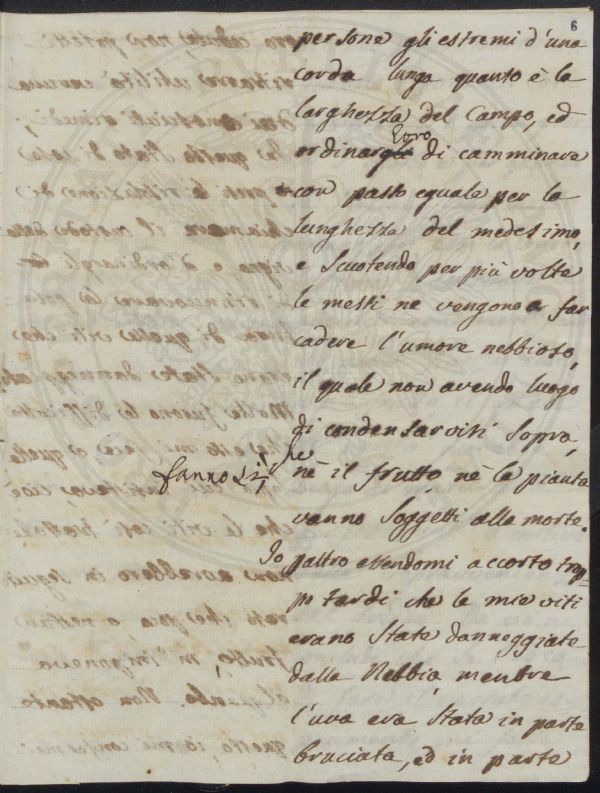 6
persone gli estremi d'una
corda lunga quanto è la
larghezza del Campo, ed
Loro
ordinargli di camminare
con passo eguale per la
lunghezza del medesimo,
e scuotendo per più volte
le messi ne vengono a far
cadere l'umore nebbioso,
il quale non avendo luogo
di condensarvisi sopra,
fanno sì, che
nè il frutto nè la pianta
vanno soggetti alla morte.
Io paltro essendomi accorto trop=
po tardi che le mie viti
erano state danneggiate
dalla Nebbia, mentre
l'uva era stata in parte
bruciata, ed in parte